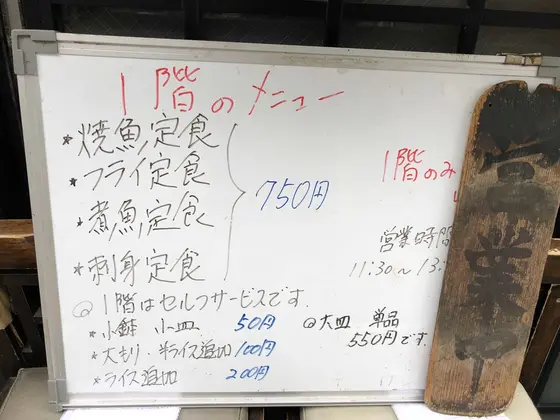 1階のメニュー
*焼魚定食
*フライ定食
*煮魚定食
*刺身定食
750円
◎1階はセルフサービスです
*小鉢 小皿 50円
*大もり・半ライス追加 100円
*ライス追加 200円
1階のみ
営業時間
11:30~13:
◎大皿 単品
550円です.
営業中